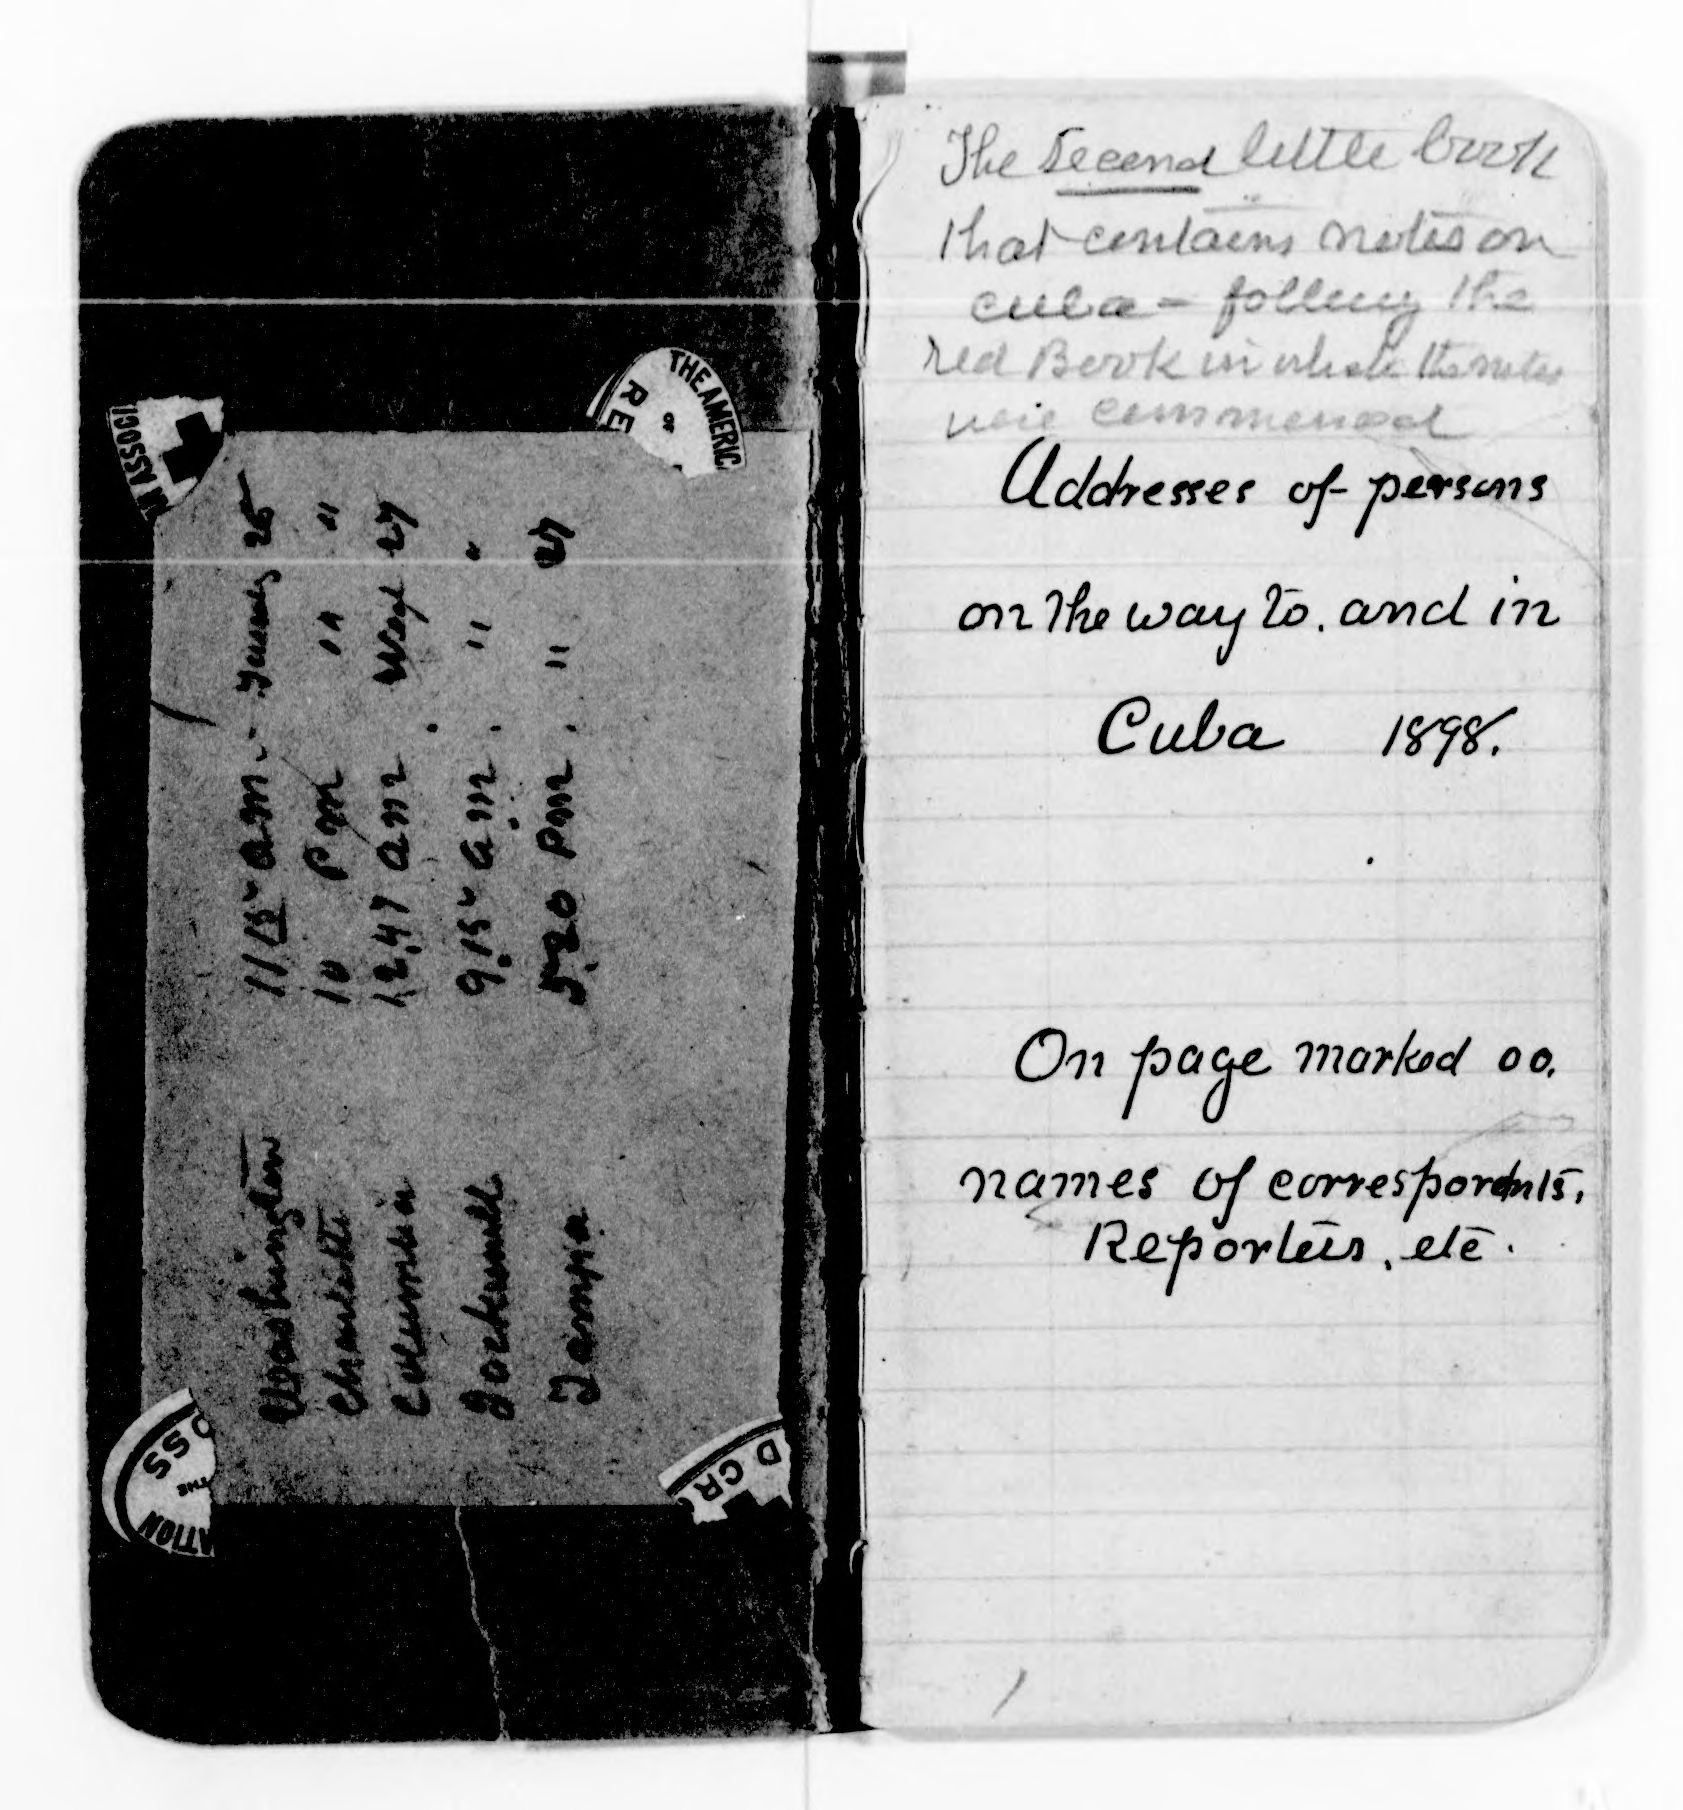 Washington 11/15 am - January 25
Charlotte 10 Pm " "
Columbia 12,47 am . Wed 27
Jacksonville 9.15 am . " "
Tampa 5.20 Pm . " 27
N ASSOCI
THE AMERIC
OF
RE
OSS
THE
ATION
D CR
The second little book
that contains notes on
cuba - follwg the
red Book in which the notes
were commenced
Addresses of persons
on the way to. and in
Cuba 1898.
On page marked oo.
names of correspondnts,
Reporters, etc.